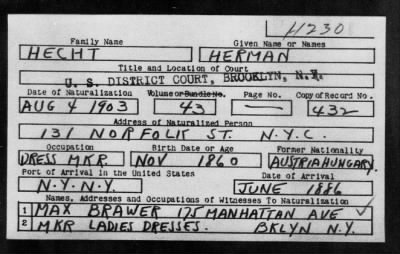 H230
Family Name Given Name or Names
HECHT HERMAN
Title and Location of Court
U. S. DISTRICT COURT, BROOKLYN, N.Y.
Date of Naturalization Volume or Bundle No. Page No. Copy of Record No.
AUG 4 1903 43 — 432
Address of Naturalized Person
131 NORFOLK ST. N.Y.C.
Occupation Birth Date or Age Former Nationality
DRESS MKR. NOV 1860 AUSTRIA HUNGARY.
Port of Arrival in the United States Date of Arrival
N.Y. N.Y. JUNE 1886
Names, Addresses and Occupations of Witnesses To Naturalization
1 MAX BRAWER 175 MANHATTAN AVE
2 MKR LADIES DRESSES. BKLYN N.Y.